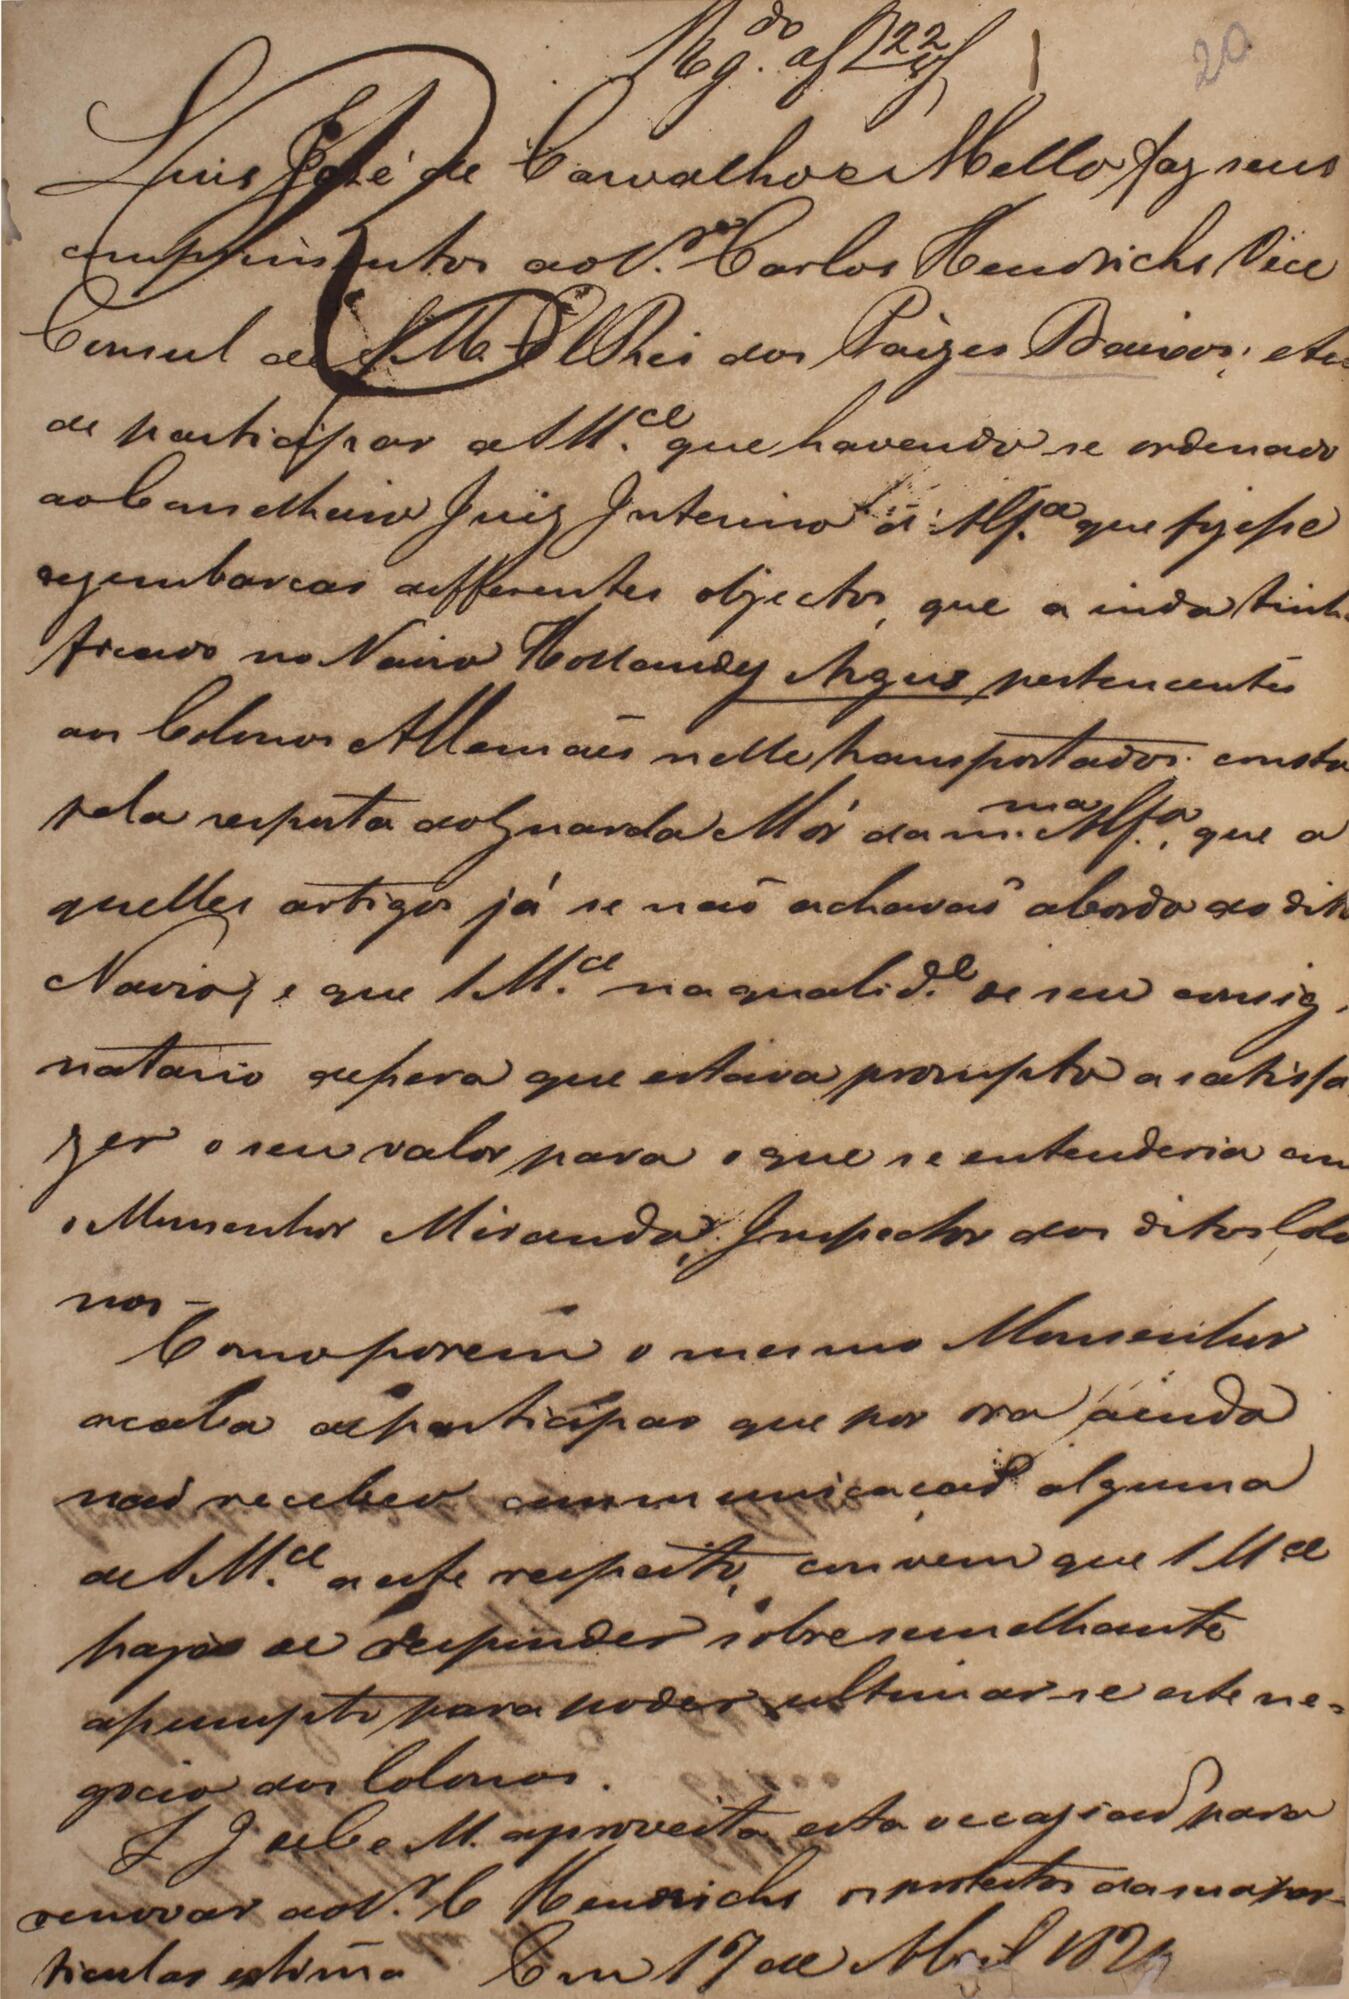 Reg.do af 22
20
Luis José de Carvalho e Mello faz seus
cumprimentos ao S.r Carlos Hendrichs Vice
Consul de S. M. El Rei dos Paizes Baixos; e tem
de participar a S M.ce que havendo-se ordenado
ao Conselheiro Juiz Interino d'Alf.a que fizesse
dezembarcar differentes objectos, que ainda tinhão
ficado no Navio Hollandez Argus pertencentes
aos Colonos Allemães nelle transportados: consta
pela resposta do Guarda Mór da m.ma Alf.a, que a
quelles artigos já se não achavão abordo do dito
Navio, e que S M.ce na qualid.e de seu consig
natario dissera que estava prompto a satisfa
zer o seu valor para o que se entenderia com
o Monsenhor Miranda, Inspector dos ditos Colo
nos-
Como porem o mesmo Monsenhor
acaba de participar que por ora ainda
não recebeo communicação alguma
de S M.ce a esse respeito, convem que S M.ce
haja de responder sobre semelhante
assumpto para poder ultimar-se este ne-
gocio dos Colonos.
L J de C e M. aproveita esta occazião para
renovar ao S.r C Hendrichs os protestos da sua par-
ticular estima Em 17 de Abril 1824